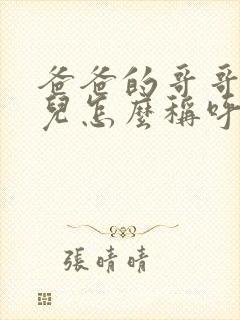 爸爸的哥哥
兒怎麼稱呼
張晴晴